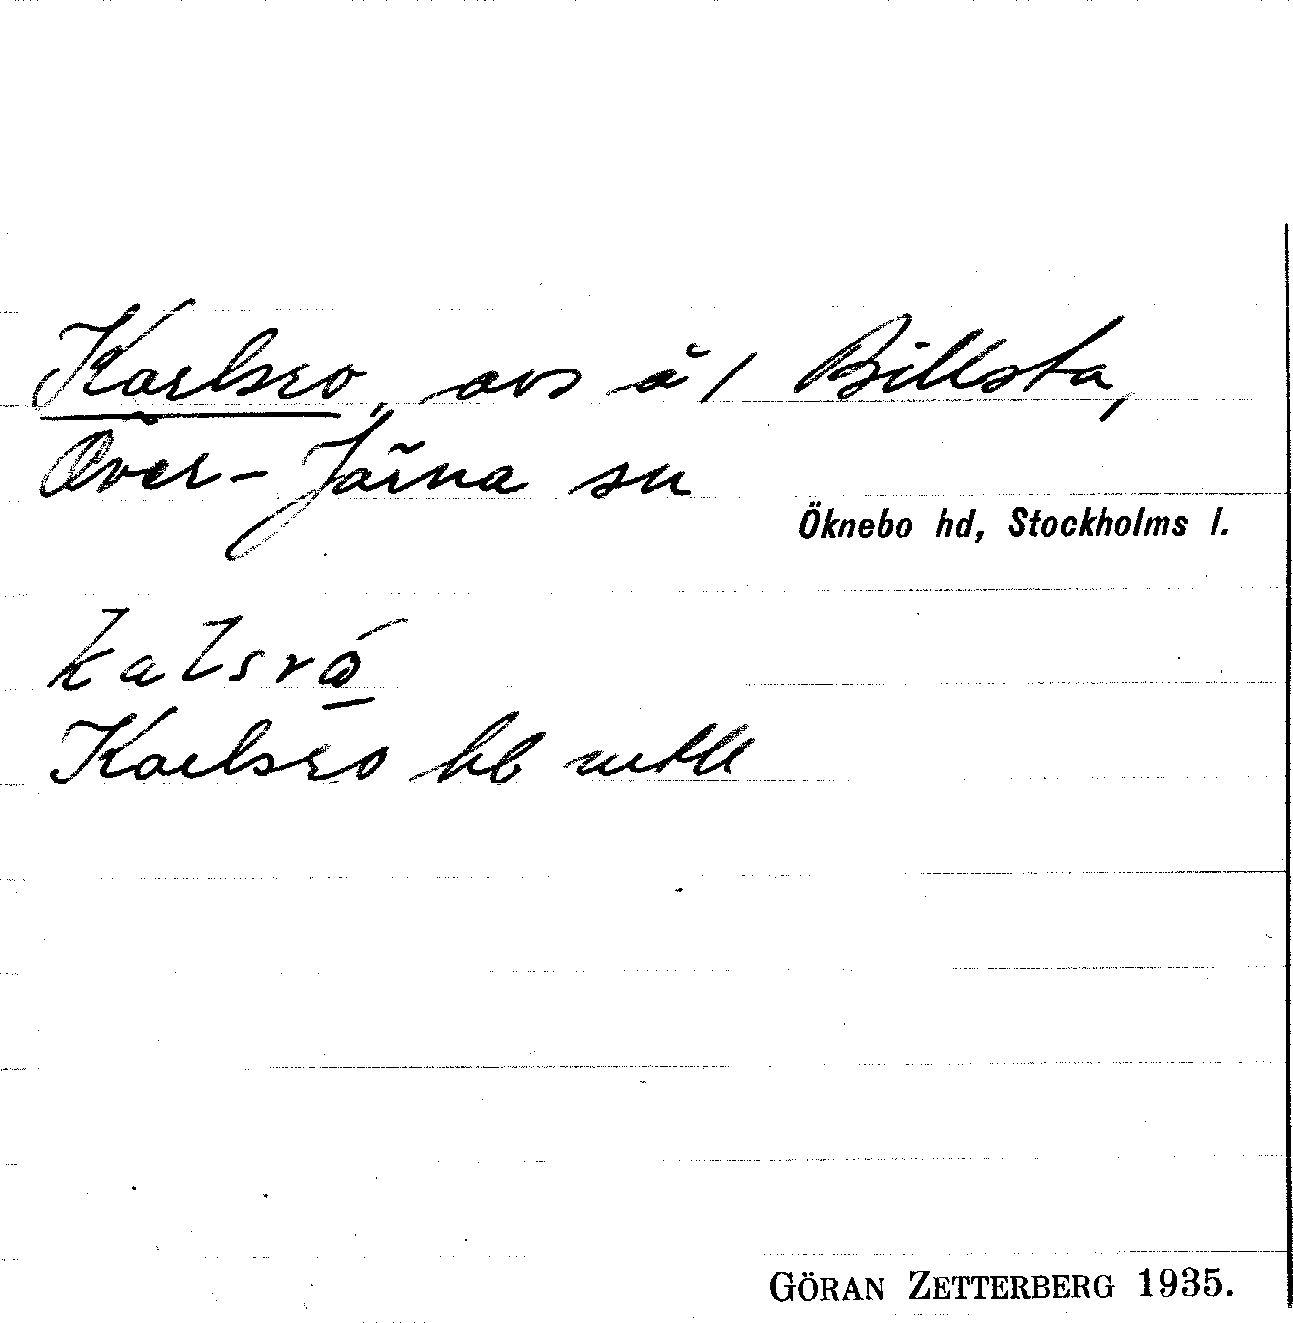 Karlsro, avs å 1 Billsta,
Över-Järna sn
Öknebo hd, Stockholms l.
kalsró̱
Karlsro hb
GÖRAN ZETTERBERG 1935.